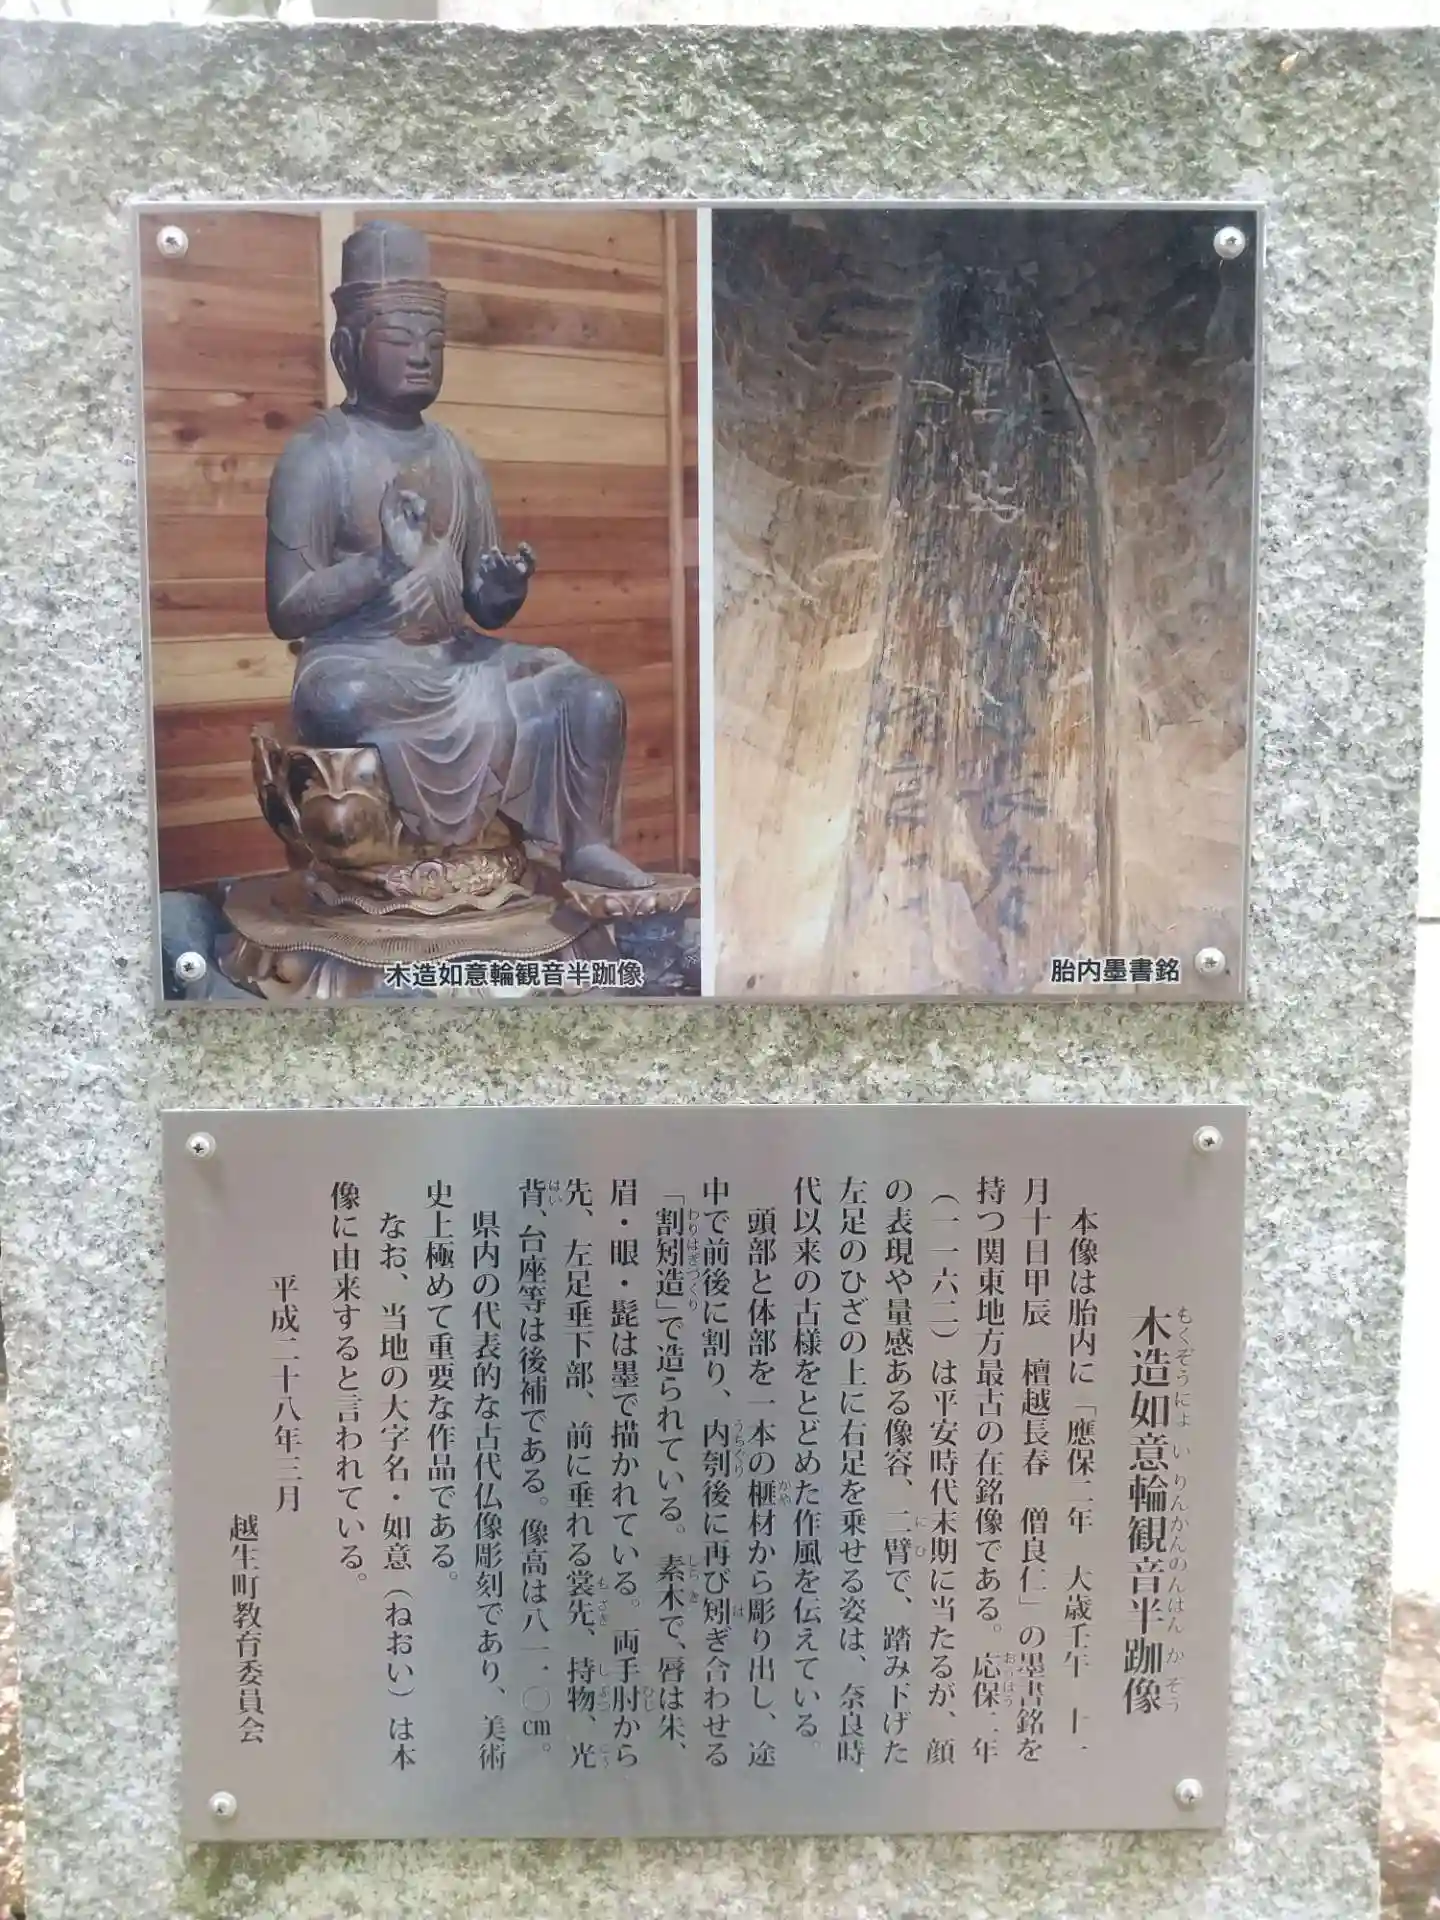 木造如意輪観音半跏像
胎内墨書銘
木造如意輪観音半跏像
もくぞうにょいりんかんのんはんかぞう
本像は胎内に「應保二年　大歳壬午　十一
月十日甲辰　檀越長春　僧良仁」の墨書銘を
持つ関東地方最古の在銘像である。応保二年
おうほう
(一一六二)は平安時代末期に当たるが、顔
の表現や量感ある像容、二臂で、踏み下げた
にひ
左足のひざの上に右足を乗せる姿は、奈良時
代以来の古様をとどめた作風を伝えている。
頭部と体部を一本の榧材から彫り出し、途
かや
中で前後に割り、内刳後に再び矧ぎ合わせる
うちぐり　は
「割矧造」で造られている。素木で、唇は朱、
わりはぎづくり　しらき
眉・眼・髭は墨で描かれている。両手肘から
ひじ
先、左足垂下部、前に垂れる裳先、持物、光
もさき　しぶつ　こう
背、台座等は後補である。像高は八一・〇㎝。
はい
県内の代表的な古代仏像彫刻であり、美術
史上極めて重要な作品である。
なお、当地の大字名・如意(ねおい)は本
像に由来すると言われている。
平成二十八年三月
越生町教育委員会